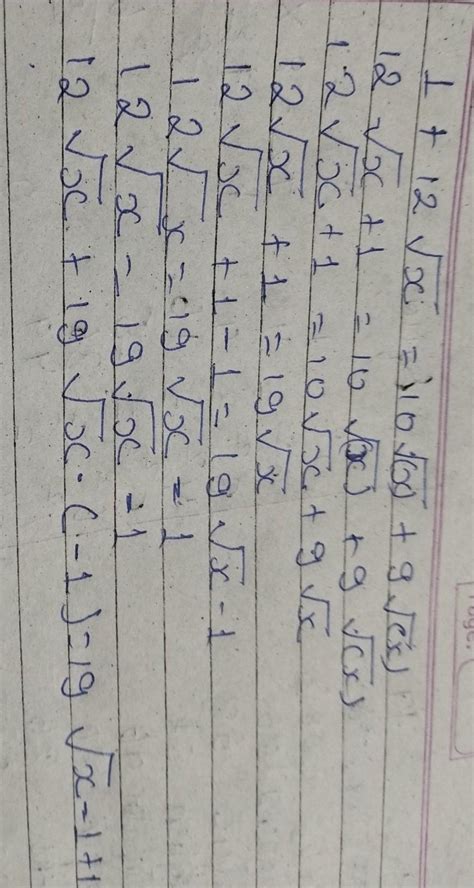 1 + 12√x = 10√(x) + 9√(x)
12√x + 1 = 10√(x) + 9√(x)
12√x + 1 = 10√x + 9√x
12√x + 1 = 19√x
12√x + 1 - 1 = 19√x - 1
12√x = 19√x = 1
12√x = 19√x - 1
12√x + 19√x · (-1) = 19√x = 1 + 1